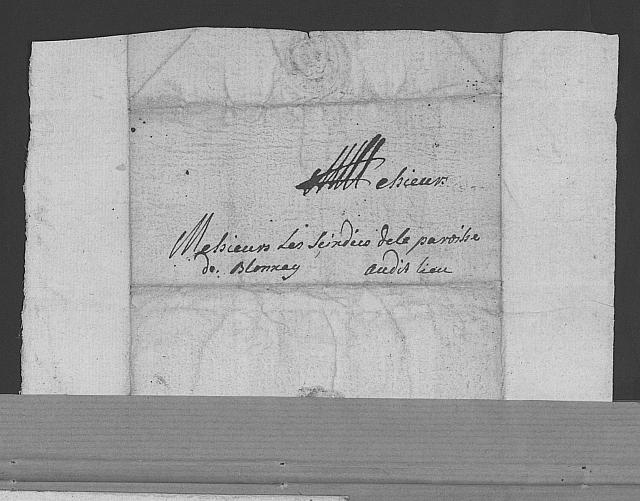 Messieurs
Messieurs Les Seindics dela paroisse
de Blonzay audit lieu